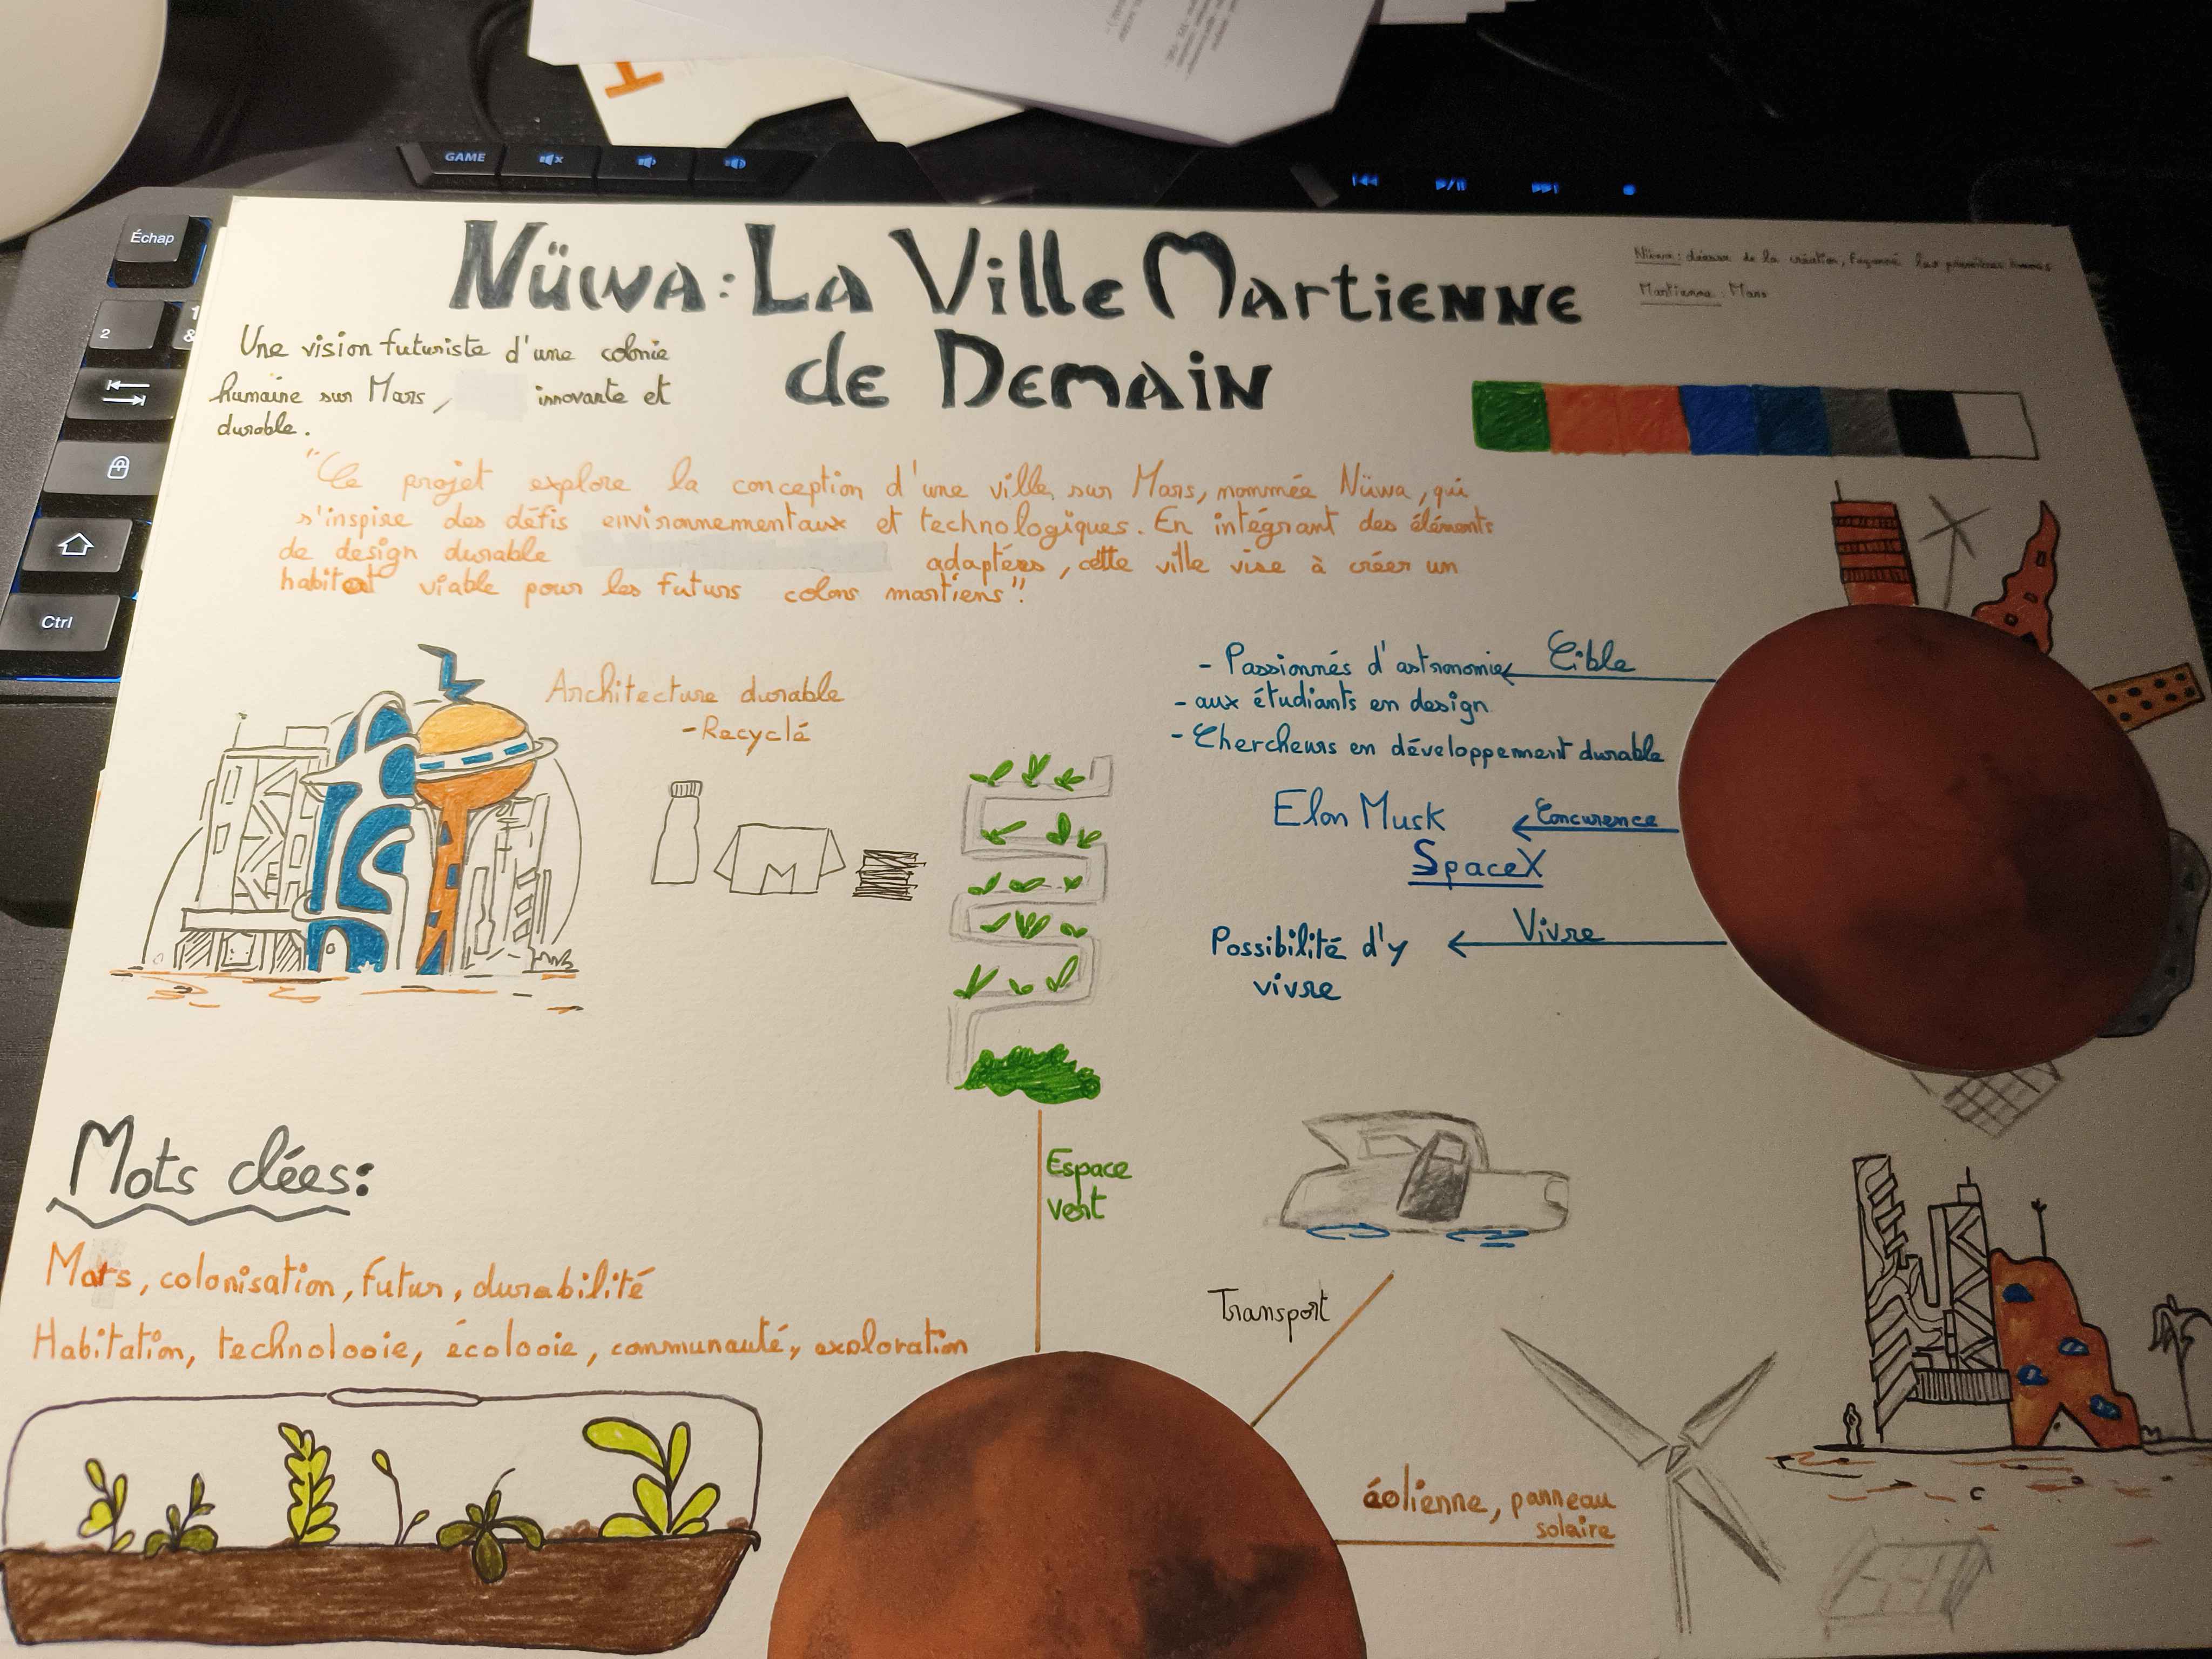 GAME
Échap
2
1
&
Ctrl
NÜWA: LA VILLE MARTIENNE
de DEMAIN
Nüwa: déesse de la création, façonné les premières
Martienne: Mars
Une vision futuriste d'une colonie
humaine sur Mars, innovante et
durable.
"Ce projet explore la conception d'une ville sur Mars, nommée Nüwa, qui
s'inspire des défis environnementaux et technologiques. En intégrant des éléments
de design durable adaptées, cette ville vise à créer un
habitat viable pour les futurs colons martiens".
Architecture durable
- Recyclé
M
Cible
- Passionnés d'astronomie
- aux étudiants en design
- Chercheurs en développement durable
Concurence
Elon Musk
SpaceX
Vivre
Possibilité d'y
vivre
Espace
vert
Transport
éolienne, panneau
solaire
Mots clées:
Mars, colonisation, futur, durabilité
Habitation, technologie, écologie, communauté, exploration